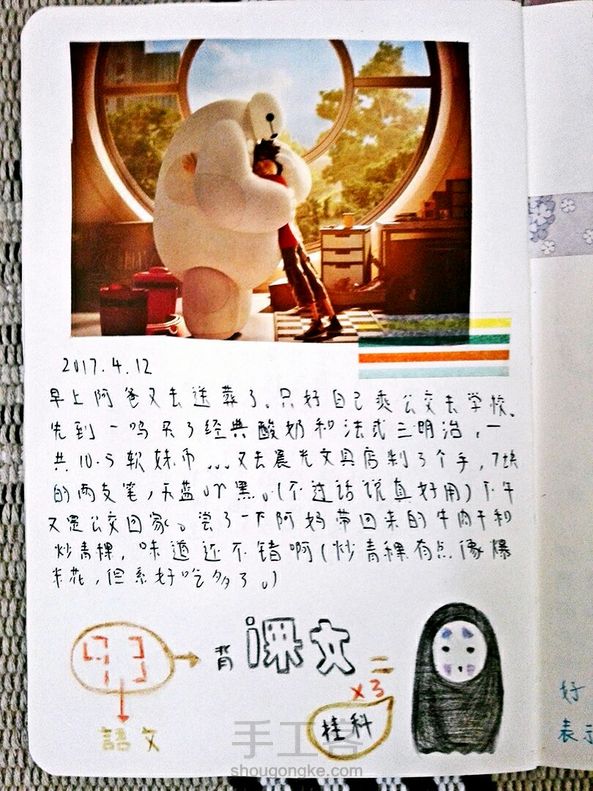 2017.4.12
早上阿爸又去送葬了。只好自己乘公交去学校。
先到一鸣买了经典酸奶和法式三明治，一
共10.5软妹币...又去晨光文具店剁了个手，7块
的两支笔，天蓝 黑。(不过话说真好用)下午
又是公交回家。尝了一下阿妈带回来的牛肉干和
炒青稞，味道还不错啊(炒青稞有点像爆
米花，但系好吃多了。)
背课文=
×3
挂科
語文
好
表示
手工客
shougongke.com